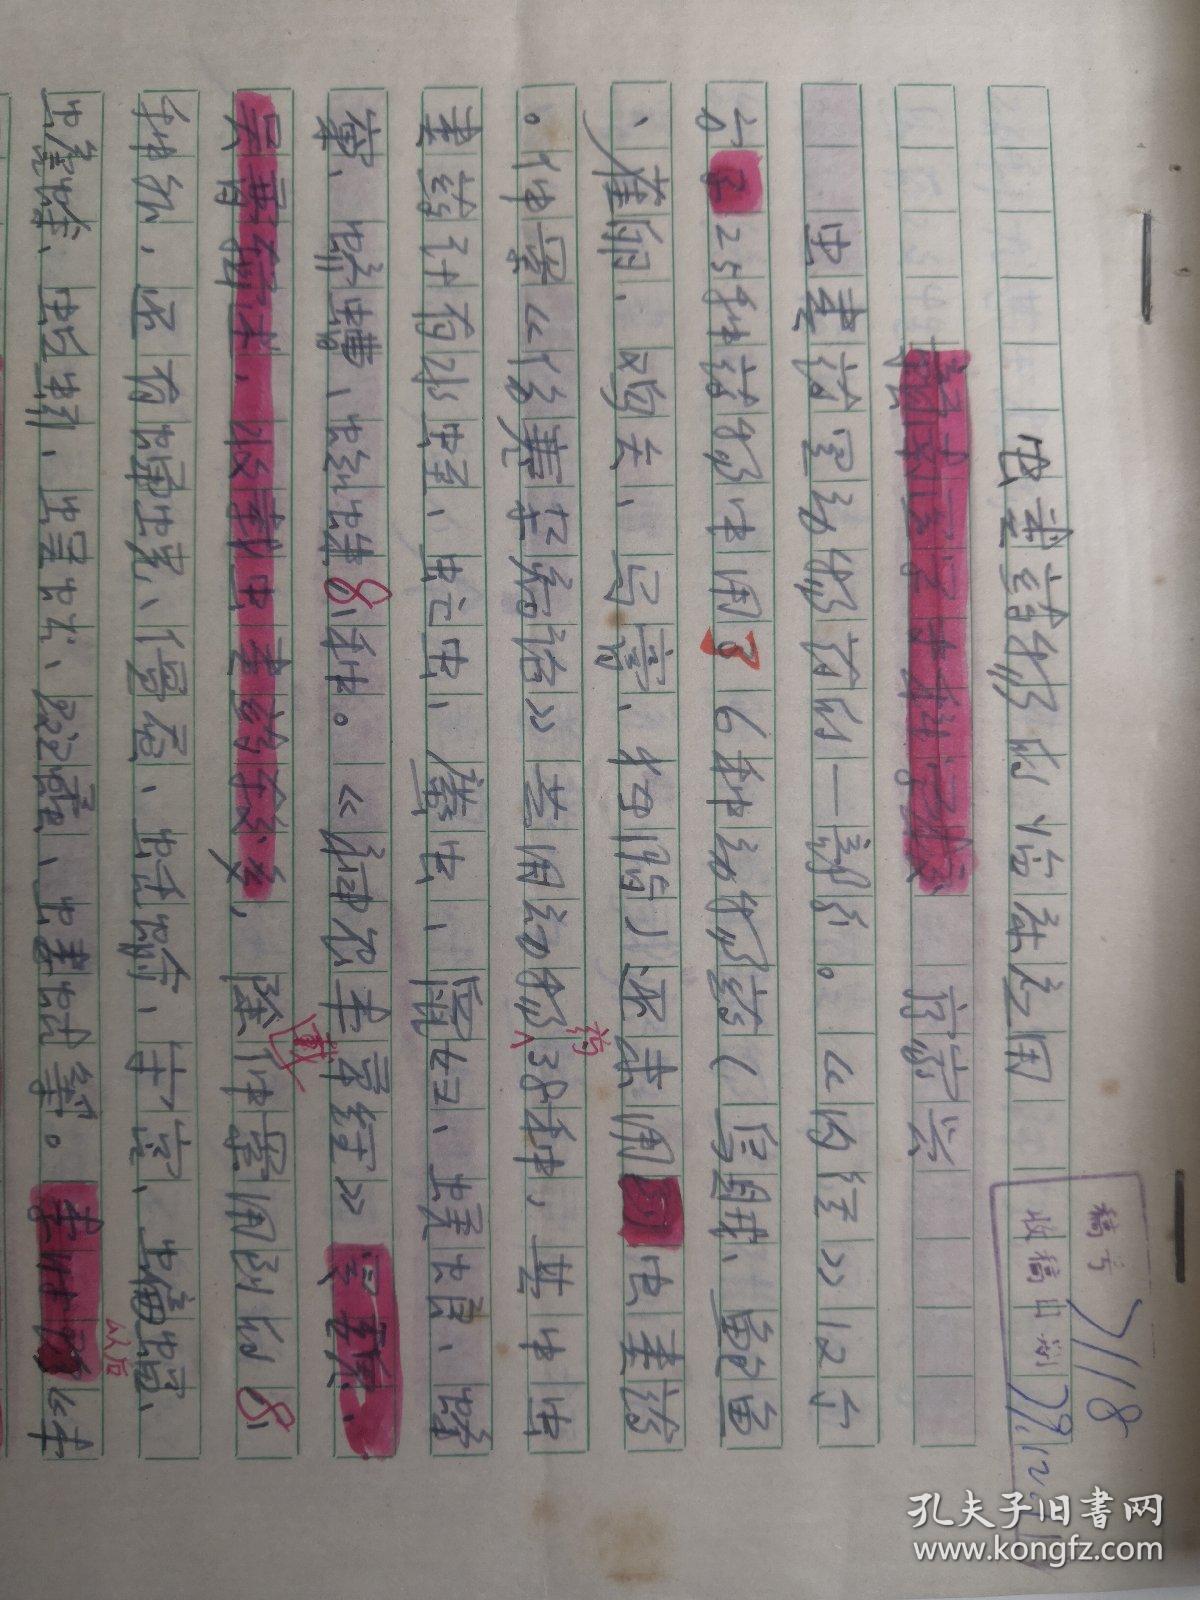 虫类药物的临床应用
虫类药是动物药的一部分。《内经》12个
方25种药物中用了6种动物药(乌鲗、鲍鱼
、雀卵、鸡矢、马膏、还未用虫类药
。仲景《伤寒杂病论》共用动物药38种,其中虫
类药计有水蛭、虻虫、䗪虫、鼠妇、蜣螂、蜂
窠、蛴螬、蜘蛛8种。《神农本草经》载
除仲景用到的8
种外,还有蝉蜕、僵蚕、蛞蝓、守宫、蠮螉、
等。以后《本
稿号 7118
收稿日期 79.12.
孔夫子旧书网
www.kongfz.com